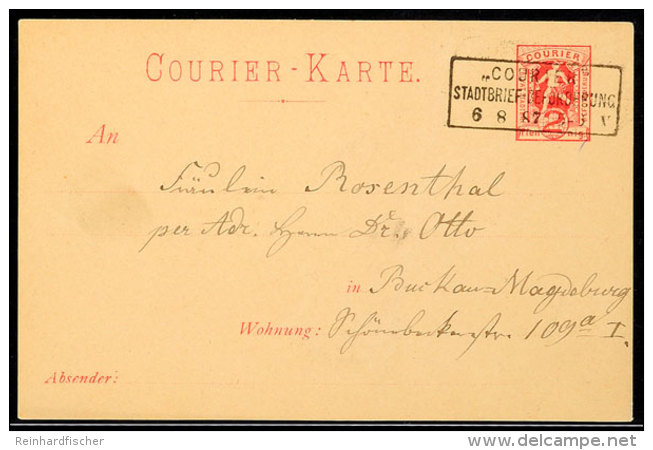 COURIER-KARTE.
COURIER
„COURIER"
STADTBRIEF-BEFÖRDERUNG
6 8 87 V
2
An
Fräulein Rosenthal
per Adr. Herrn Dr. Otto
in Buckau-Magdeburg
Wohnung: Schönebeckerstr. 109a I.
Absender:
Reinhardfischer
delcampe.net